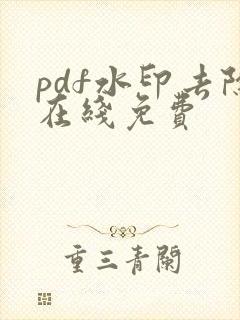 pdf水印去除
在綫免費
重三青閣